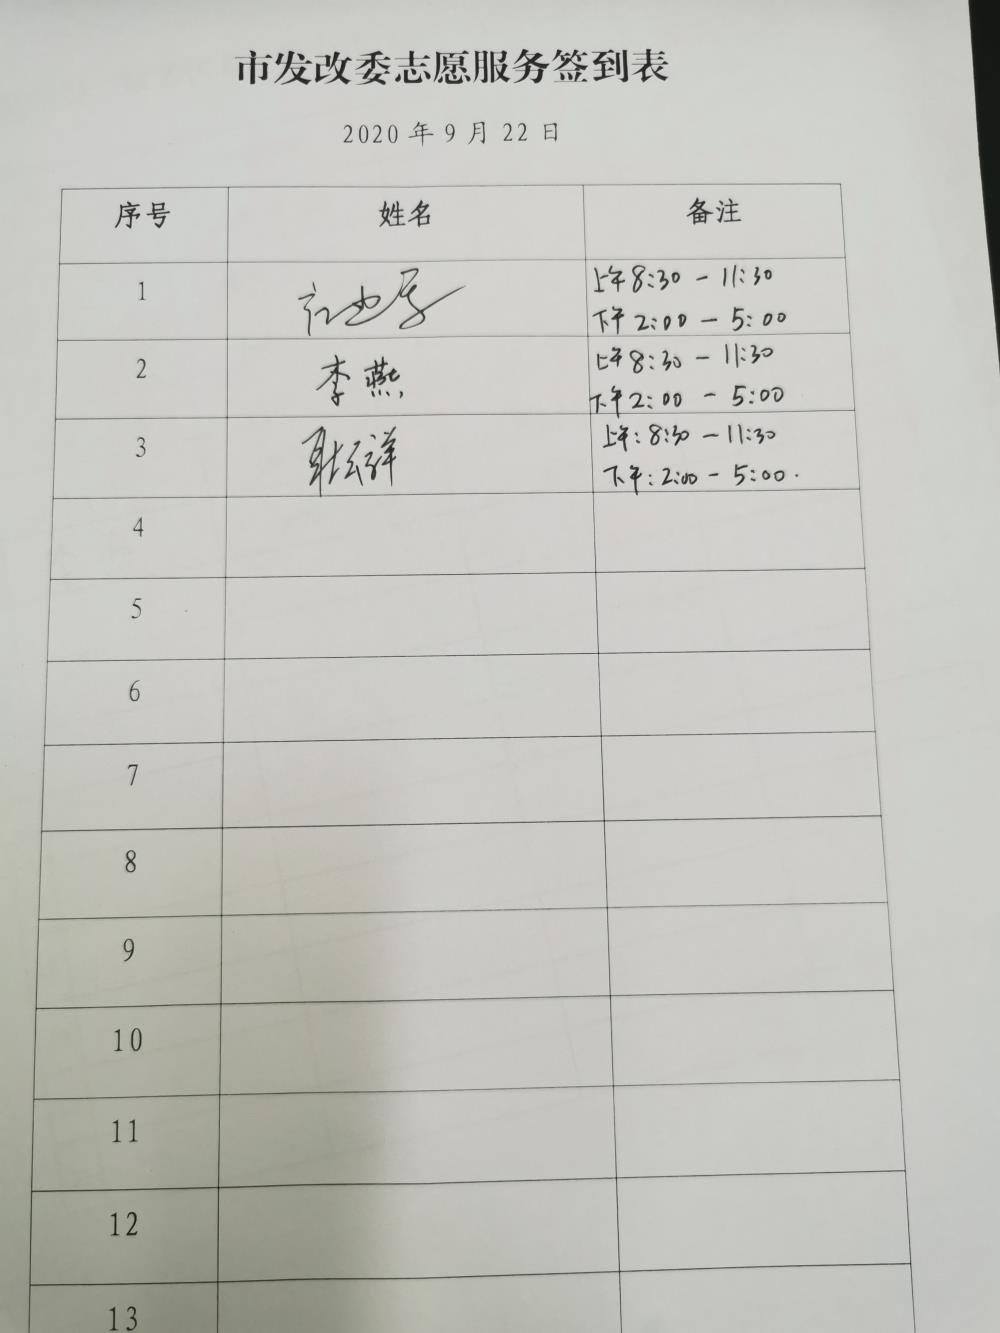 市发改委志愿服务签到表
2020 年 9 月 22 日
序号 姓名 备注
1
上午 8:30 - 11:30
下午 2:00 - 5:00
2 李燕
上午 8:30 - 11:30
下午 2:00 - 5:00
3 耿云祥
上午: 8:30 - 11:30
下午: 2:00 - 5:00.
4
5
6
7
8
9
10
11
12
13